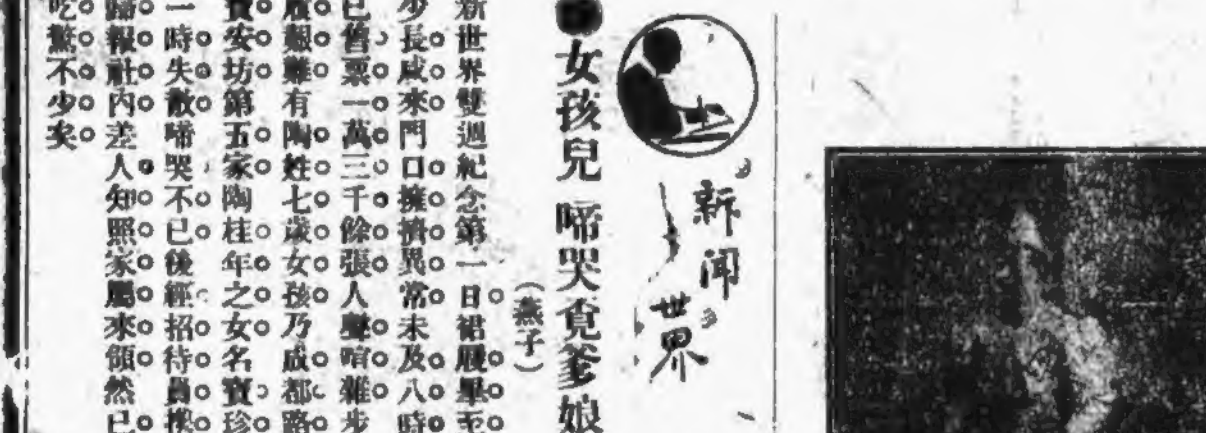 新聞世界
女孩兒 啼哭覓爹娘
(燕子)
新世界雙週紀念第一日裙屐畢至
少長咸來門口擁擠異常未及八時
已舊票一萬三千餘張人聲喧雜步
履艱難有陶姓七歲女孩乃成都路
寶安坊第五家陶桂年之女名寶珍
一時失散啼哭不已後經招待員
歸報社內差人知照家屬來領然已
吃驚不少矣